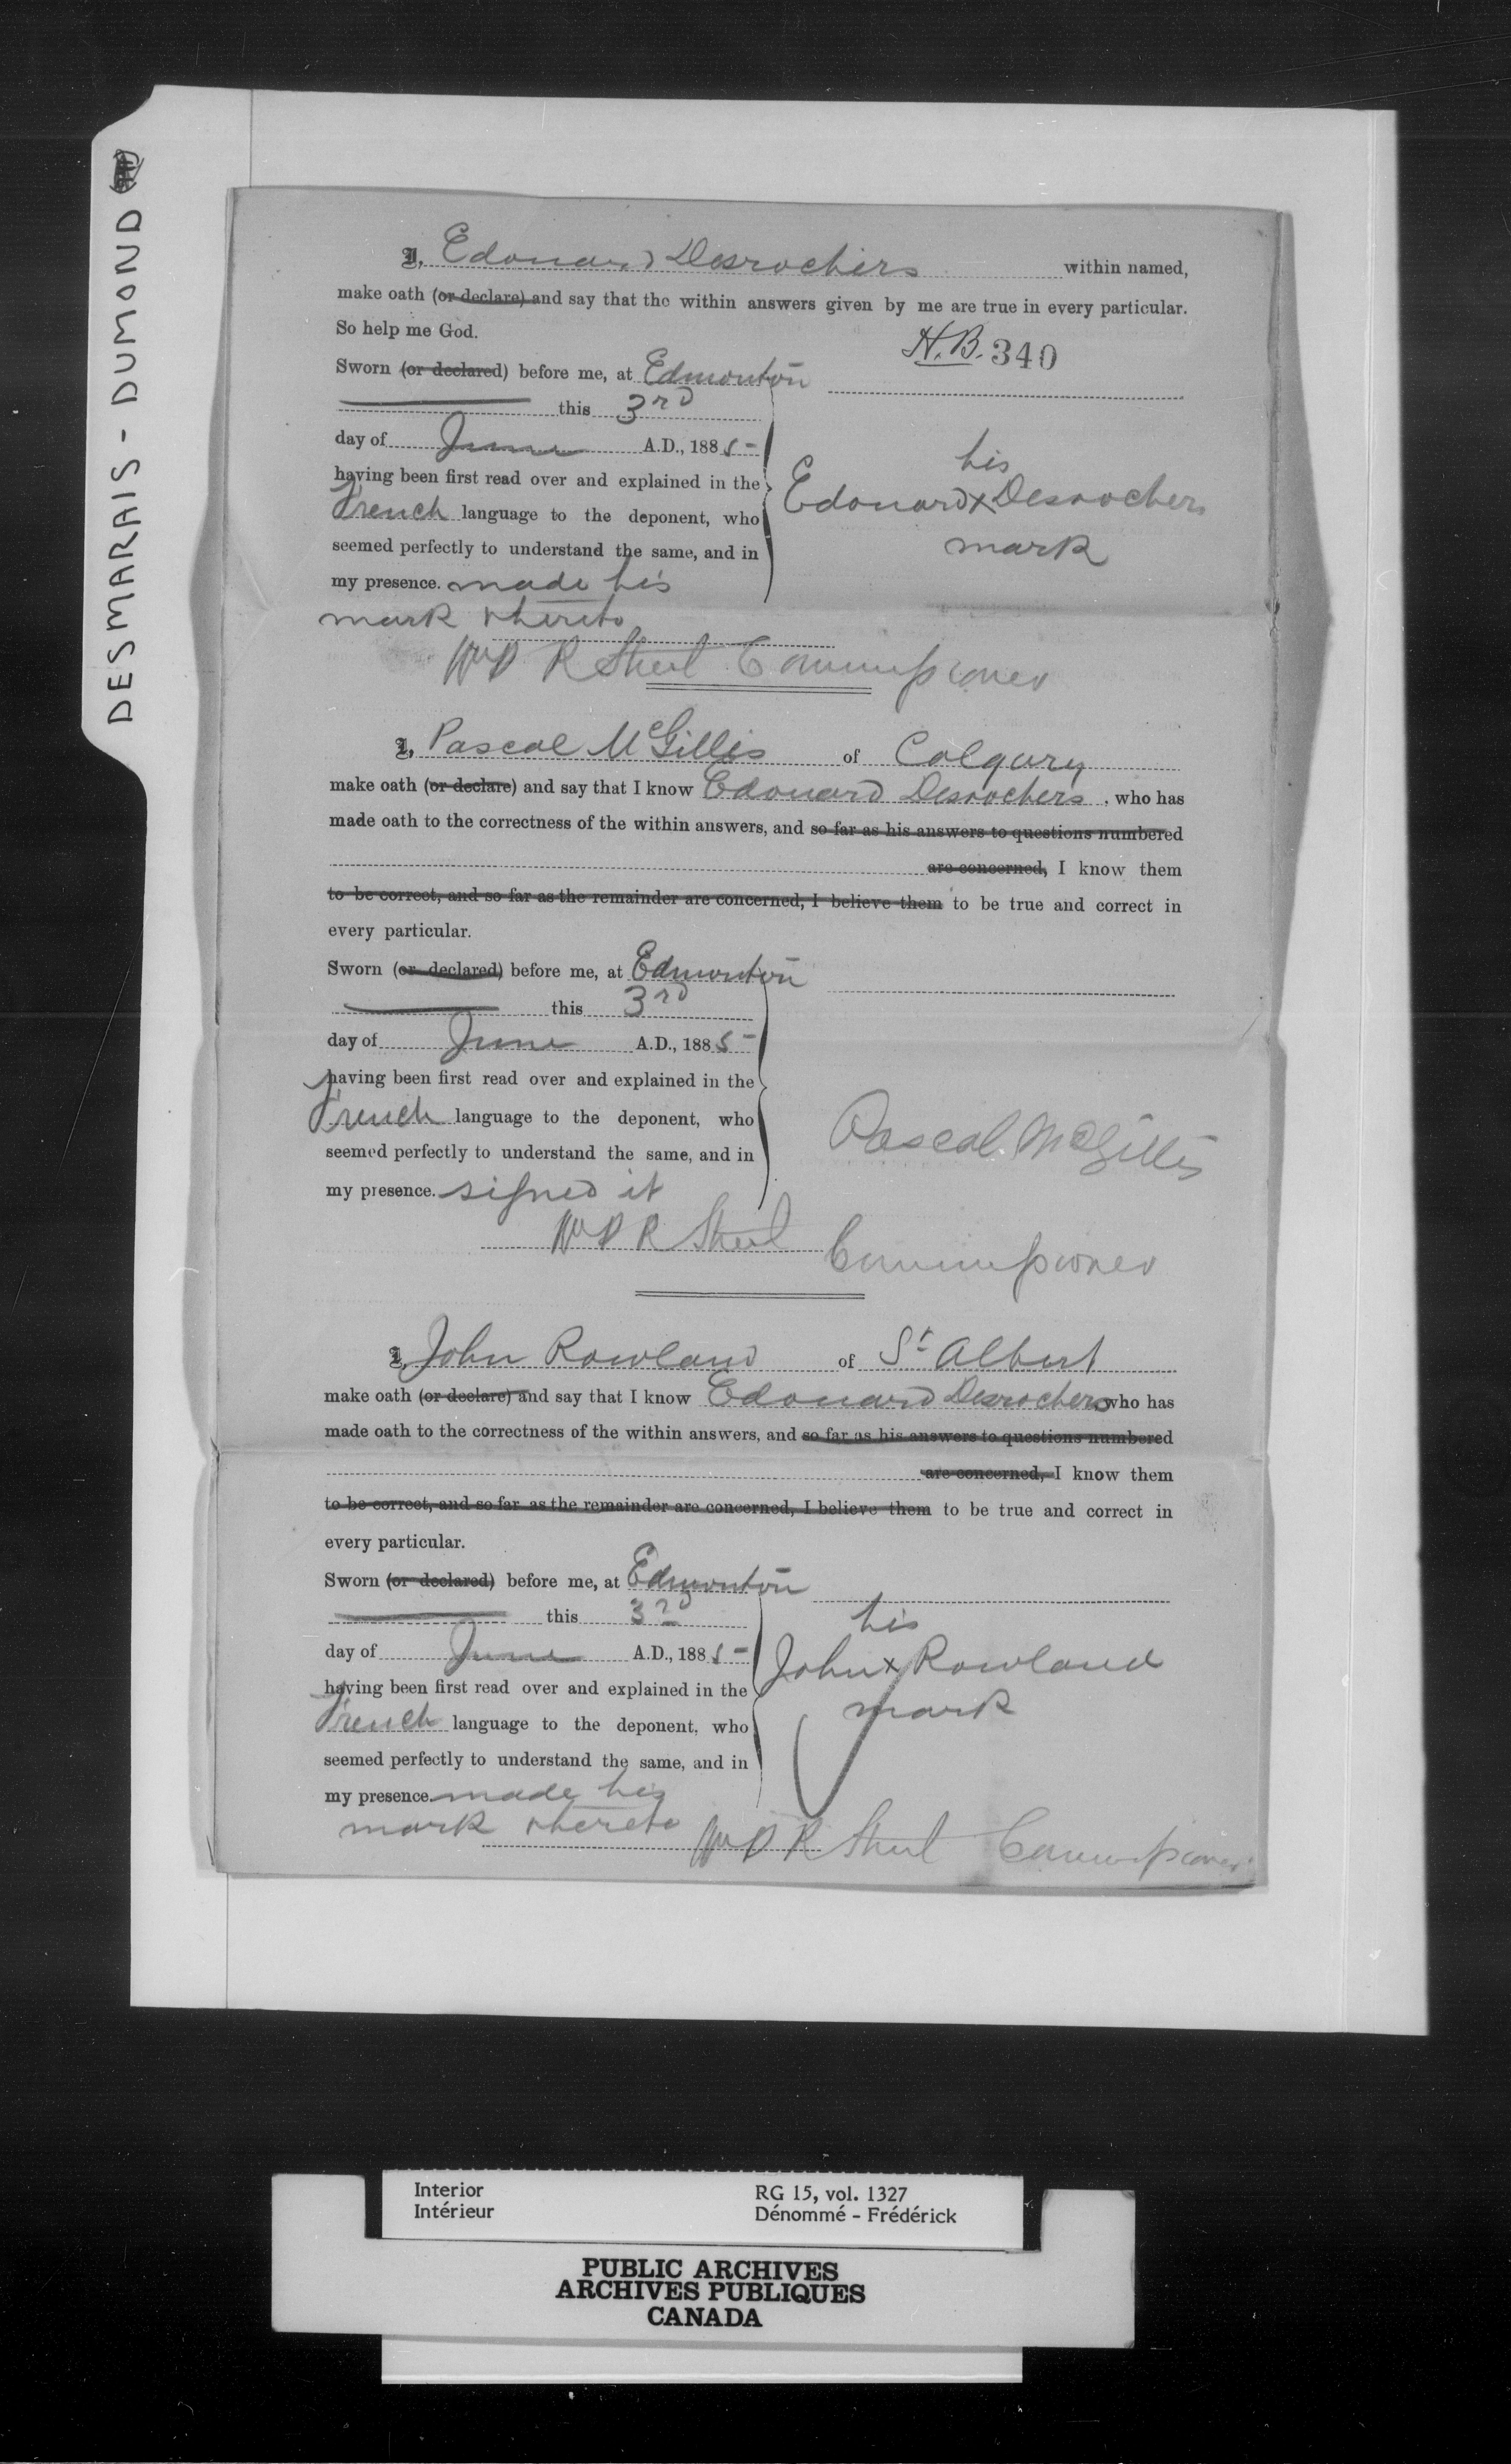 DESMARAIS - DUMOND
I, Edouard Desrochers within named,
make oath (or declare) and say that the within answers given by me are true in every particular.
So help me God.
H.B. 340
Sworn (or declared) before me, at Edmonton
this 3rd
day of June A.D., 1885-
having been first read over and explained in the
French language to the deponent, who
seemed perfectly to understand the same, and in
my presence. made his
mark thereto
his
Edouard x Desrochers
mark
R Street Commissioner
I, Pascal McGillis of Calgary
make oath (or declare) and say that I know Edouard Desrochers, who has
made oath to the correctness of the within answers, and so far as his answers to questions numbered
are concerned, I know them
to be correct, and so far as the remainder are concerned, I believe them to be true and correct in
every particular.
Sworn (or declared) before me, at Edmonton
this 3rd
day of June A.D., 1885-
having been first read over and explained in the
French language to the deponent, who
seemed perfectly to understand the same, and in
my presence. signed it
Pascal McGillis
R Street Commissioner
I, John Rowland of St Albert
make oath (or declare) and say that I know Edouard Desrochers who has
made oath to the correctness of the within answers, and so far as his answers to questions numbered
are concerned, I know them
to be correct, and so far as the remainder are concerned, I believe them to be true and correct in
every particular.
Sworn (or declared) before me, at Edmonton
this 3rd
day of June A.D., 1885-
having been first read over and explained in the
French language to the deponent, who
seemed perfectly to understand the same, and in
my presence. made his
mark thereto
his
John x Rowland
mark
R Street Commissioner
Interior
Intérieur
RG 15, vol. 1327
Dénommé - Frédérick
PUBLIC ARCHIVES
ARCHIVES PUBLIQUES
CANADA